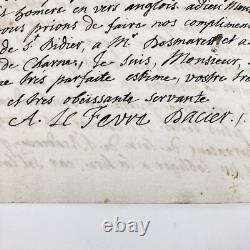 homere en vers anglois. adieu Mon
vous prions de faire nos complimen
de S. Didier, a Mr. Desmarets et a
de Charnes, je suis, Monsieur,
tres parfaite estime, vostre tre
et tres obeissante servante
A. le Fevre Dacier.